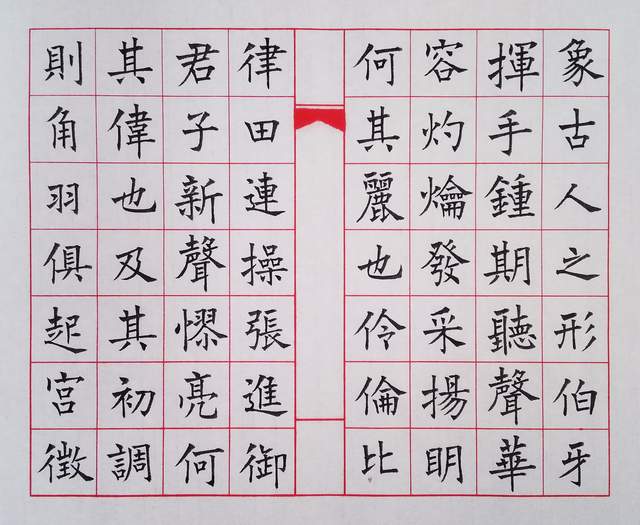 象古人之形伯牙
揮手鍾期聽聲華
容灼爚發采揚明
何其麗也伶倫比
律田連操張進御
君子新聲憀亮何
其偉也及其初調
則角羽俱起宮徵